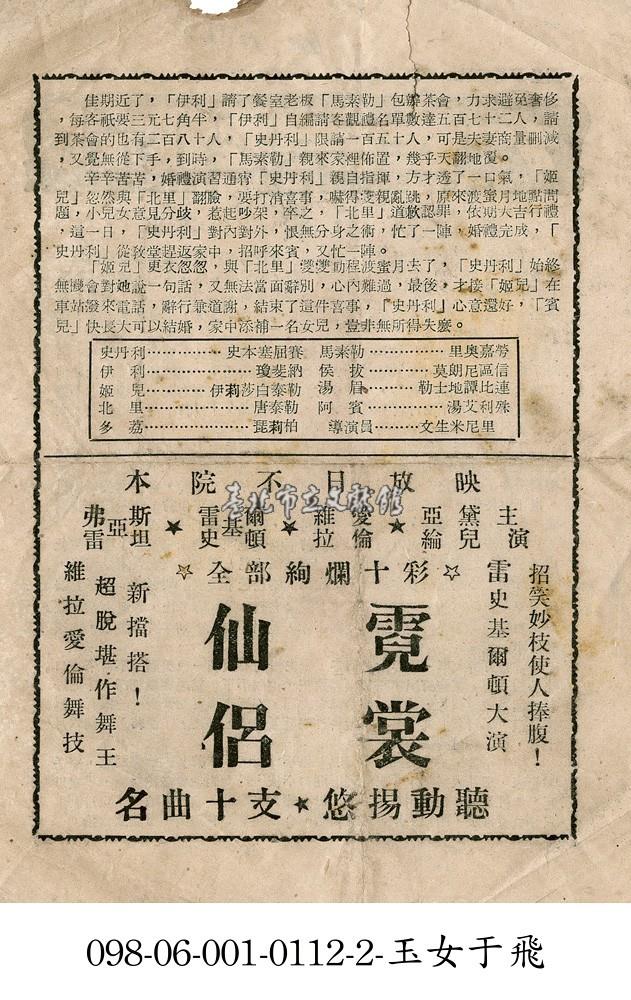 佳期近了，「伊利」請了餐室老板「馬素勒」包辦茶會，力求避免奢侈
，每客祇要三元七角半，「伊利」自編請客觀禮名單數達五百七十二人，請
到茶會的也有二百八十人，「史丹利」限請一百五十人，可是夫妻商量刪減
，又覺無從下手，到時，「馬素勒」親來家裡佈置，幾乎天翻地覆。
辛辛苦苦，婚禮演習通宵「史丹利」親自指揮，方才透了一口氣，「姬
兒」忽然與「北里」翻臉，要打消喜事，嚇得雙親亂跳，原來渡蜜月地點問
題，小兒女意見分歧，惹起吵架，卒之，「北里」道歉認罪，依期大吉行禮
，這一日，「史丹利」對內對外，恨無分身之術，忙了一陣，婚禮完成，「
史丹利」從敎堂趕返家中，招呼來賓，又忙一陣。
「姬兒」更衣忽忽，與「北里」雙雙動程渡蜜月去了，「史丹利」始終
無機會對她說一句話，又無法當面辭別，心內難過，最後，才接「姬兒」在
車站發來電話，辭行兼道謝，結束了這件喜事，「史丹利」心意還好，「賓
兒」快長大可以結婚，家中添補一名女兒，豈非無所得失麼。
史丹利…………史本塞屈賽　馬素勒…………里奧嘉勞
伊利……………瓊斐納　侯拔…………莫朗尼區信
姬兒………伊莉莎白泰勒　湯眉………勒士地譚比連
北里……………唐泰勒　阿賓…………湯艾利殊
多荔……………琵莉柏　導演員………文生米尼里
本院不日放映
弗雷亞斯坦★雷史基爾頓★維拉愛倫★亞綸黛兒主演
☆全部絢爛十彩☆
招笑妙枝使人捧腹！
雷史基爾頓大演
霓裳
仙侶
新擋搭！
超脫堪作舞王
維拉愛倫舞技
名曲十支★悠揚動聽
臺北市立文獻館
098-06-001-0112-2-玉女于飛